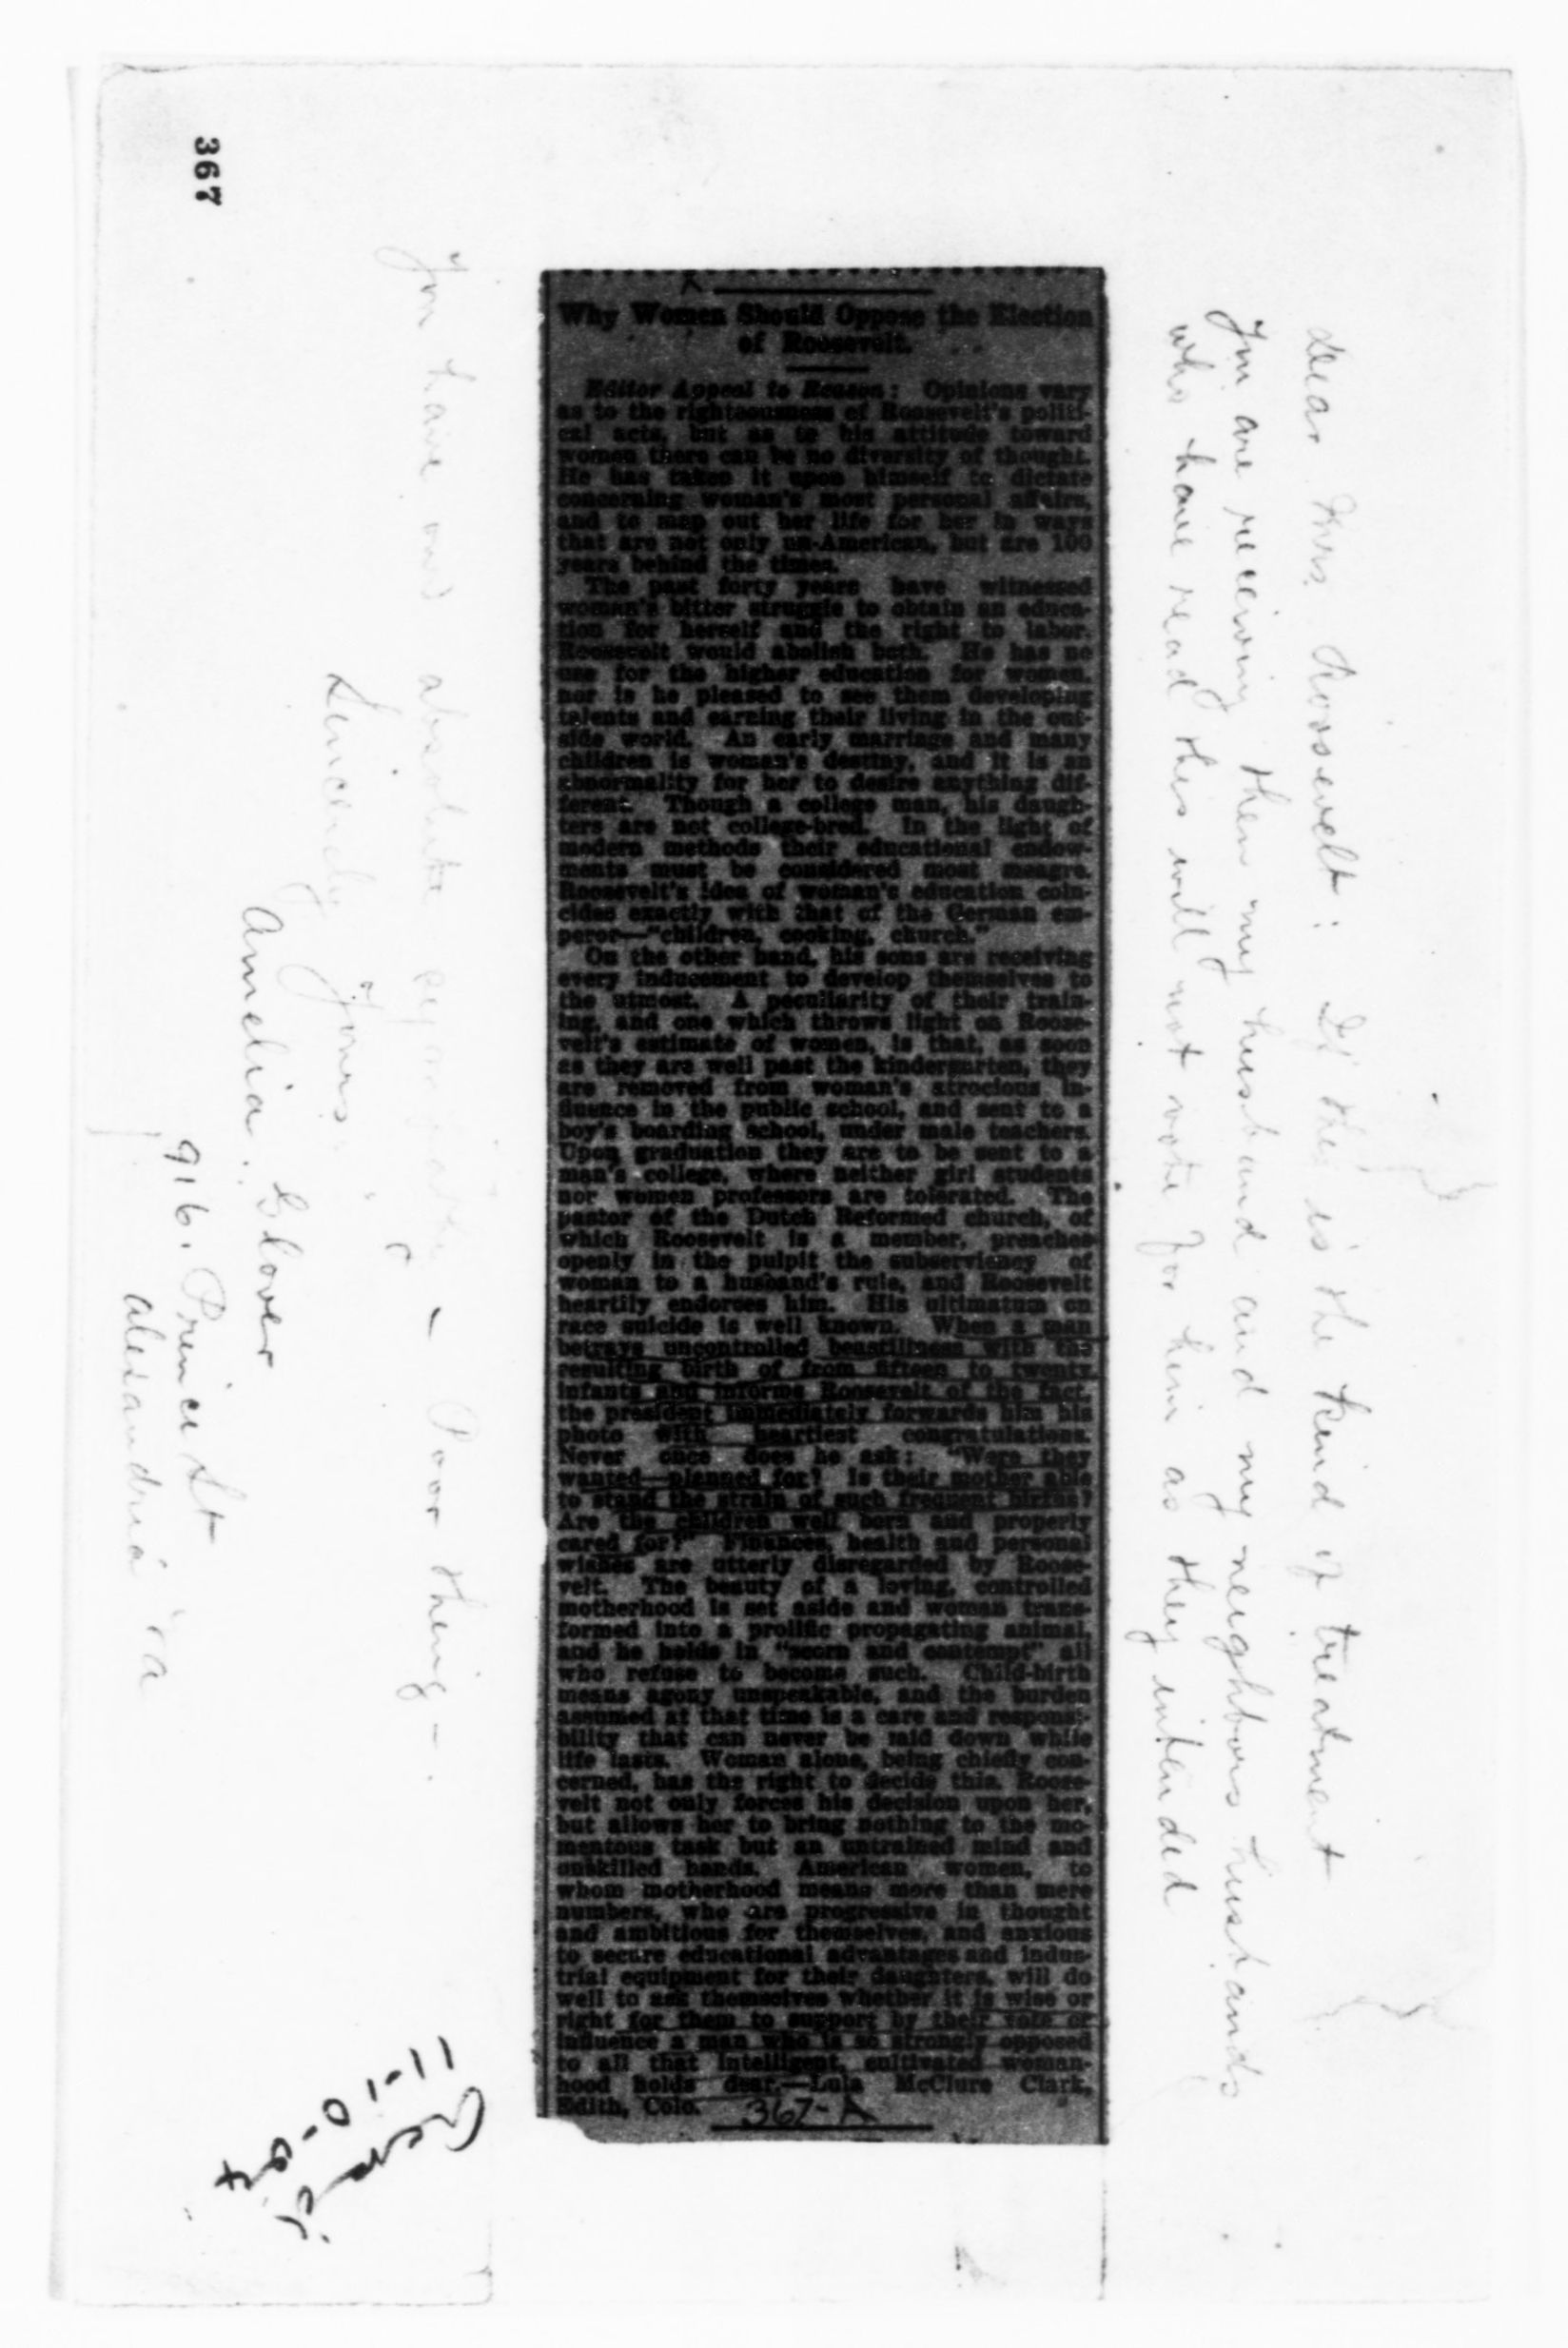 367
Dear Mrs. Roosevelt: If this is the kind of treatment
You are receiving then my husband and my neighbors husbands
who have read this will not vote for him as they intended
Why Women Should Oppose the Election
of Roosevelt.
Editor Appeal to Reason: Opinions vary
as to the righteousness of Roosevelt's politi-
cal acts, but as to his attitude toward
women there can be no diversity of thought.
He has taken it upon himself to dictate
concerning woman's most personal affairs,
and to map out her life for her in ways
that are not only un-American, but are 100
years behind the times.
The past forty years have witnessed
woman's bitter struggle to obtain an educa-
tion for herself and the right to labor.
Roosevelt would abolish both. He has no
use for the higher education for women,
nor is he pleased to see them developing
talents and earning their living in the out-
side world. An early marriage and many
children is woman's destiny, and it is an
abnormality for her to desire anything dif-
ferent. Though a college man, his daugh-
ters are not college-bred. In the light of
modern methods their educational endow-
ments must be considered most meagre.
Roosevelt's idea of woman's education coin-
cides exactly with that of the German em-
peror—"children, cooking, church."
On the other hand, his sons are receiving
every inducement to develop themselves to
the utmost. A peculiarity of their train-
ing, and one which throws light on Roose-
velt's estimate of women, is that, as soon
as they are well past the kindergarten, they
are removed from woman's atrocious in-
fluence in the public school, and sent to a
boy's boarding school, under male teachers.
Upon graduation they are to be sent to a
man's college, where neither girl students
nor women professors are tolerated. The
pastor of the Dutch Reformed church, of
which Roosevelt is a member, preaches
openly in the pulpit the subserviency of
woman to a husband's rule, and Roosevelt
heartily endorses him. His ultimatum on
race suicide is well known. When a man
betrays uncontrolled beastliness with the
resulting birth of from fifteen to twenty
infants and informs Roosevelt of the fact,
the president immediately forwards him his
photo with heartiest congratulations.
Never once does he ask: "Were they
wanted—planned for? Is their mother able
to stand the strain of such frequent births?
Are the children well born and properly
cared for?" Finances, health and personal
wishes are utterly disregarded by Roose-
velt. The beauty of a loving, controlled
motherhood is set aside and woman trans-
formed into a prolific propagating animal,
and he holds in "scorn and contempt" all
who refuse to become such. Child-birth
means agony unspeakable, and the burden
assumed at that time is a care and responsi-
bility that can never be laid down while
life lasts. Woman alone, being chiefly con-
cerned, has the right to decide this. Roose-
velt not only forces his decision upon her,
but allows her to bring nothing to the mo-
mentous task but an untrained mind and
unskilled hands. American women, to
whom motherhood means more than mere
numbers, who are progressive in thought
and ambitious for themselves, and anxious
to secure educational advantages and indus-
trial equipment for their daughters, will do
well to ask themselves whether it is wise or
right for them to support by their vote or
influence a man who is so strongly opposed
to all that intelligent, cultivated woman-
hood holds dear.—Lula McClure Clark,
Edith, Colo.
367-A
You have our absolute sympathy — Poor thing —
Sincerely Yours
Amelia Glover
916. Prince St
Alexandria Va
11-10-04